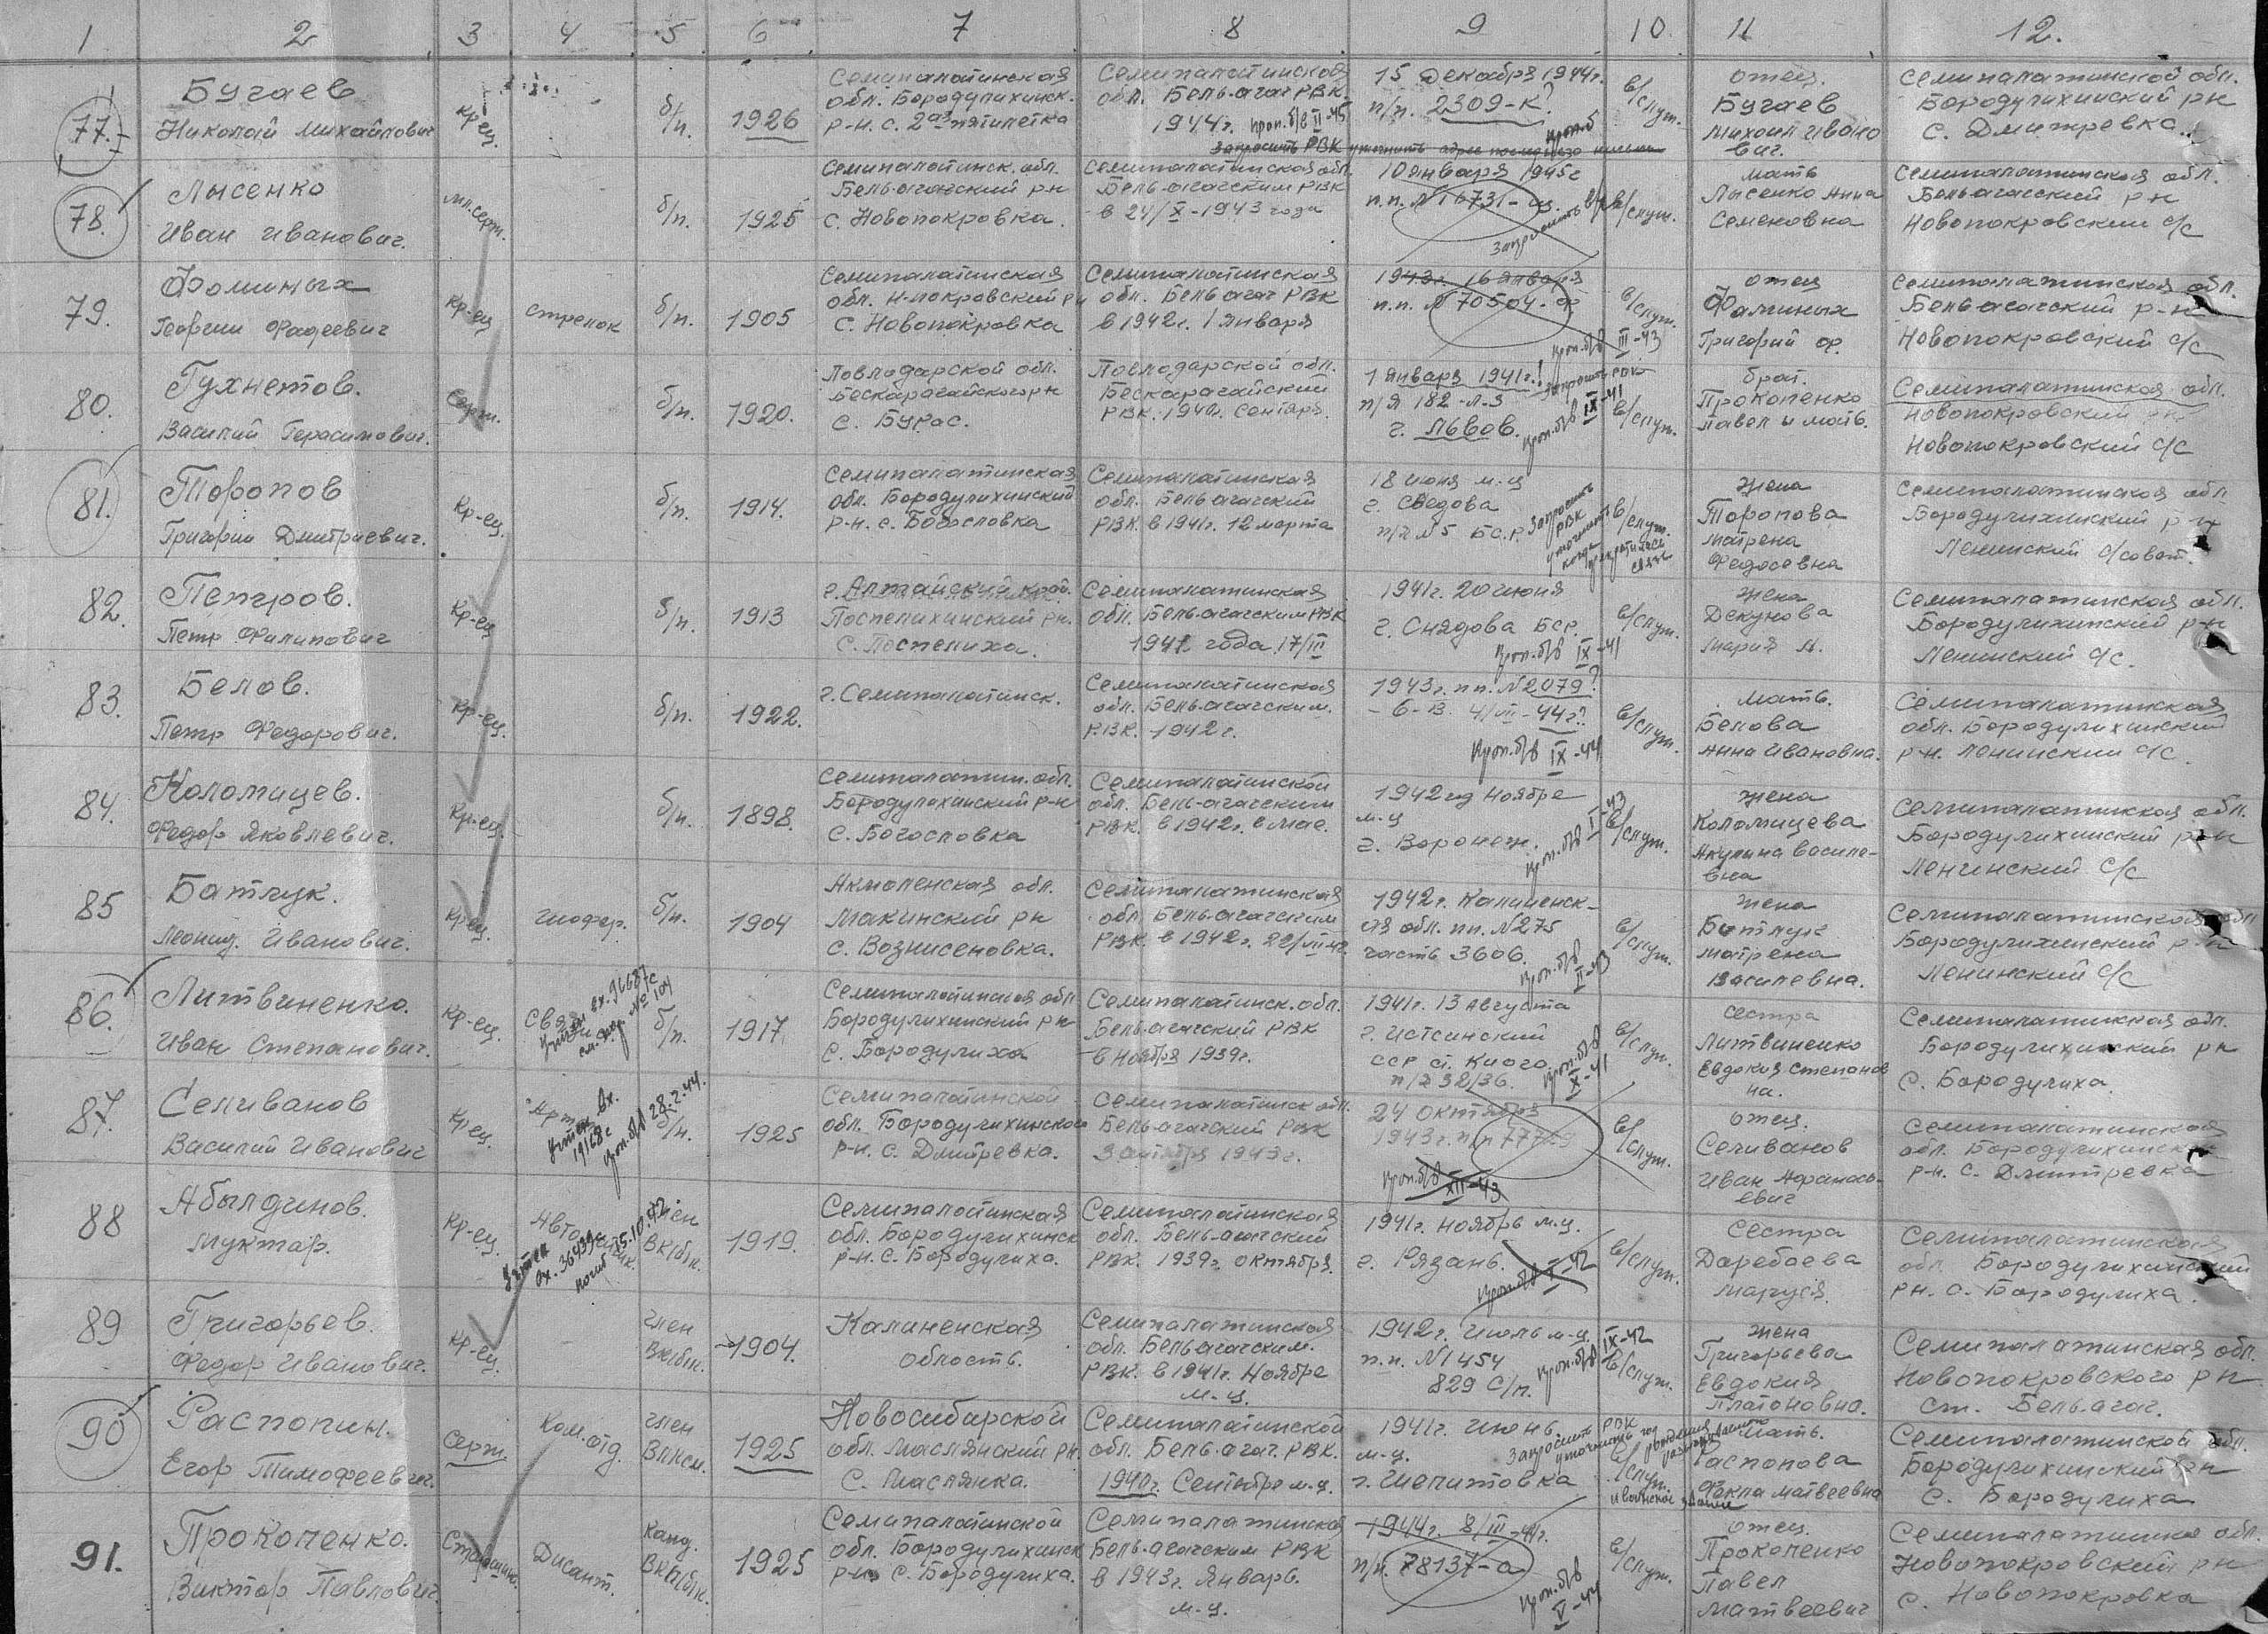 1 2 3 4 5 6 7 8 9 10. 11 12.
77. Бугаев Николай Михайлович кр-ец. б/п. 1926
Семипалатинская обл. Бородулихинск. р-н. с. 2ая пятилетка
Семипалатинской обл. Бель-агач РВК. 1944г. проп. б/в II-45
15 декабря 1944г. п/п. 2309-к?
в/служ.
отец. Бугаев Михаил Иванович.
Семипалатинской обл. Бородулихинский рн с. Дмитревка.
запросить РВК уточнить адрес последнего письма
78. Лысенко Иван Иванович. мл.серж. б/п. 1925
Семипалатинск. обл. Бель-агачский рн с. Новопокровка.
Семипалатинская обл. Бель-агачским РВК в 24/X-1943 года
10 января 1945г п.п. №16731-
запросить
в/служ.
мать Лысенко Анна Семеновна
Семипалатинская обл. Бель-агачский рн Новопокровский с/с
79. Фоминых Георгии Фадеевич кр-ец стрелок б/п. 1905
Семипалатинская обл. н-покровский рн с. Новопокровка
Семипалатинская обл. Бель агач РВК в 1942г. 1 января
1943г. 16 января п.п. №70504-ф
проп. б/в III-43
в/служ.
отец Фаминых Григорий Ф.
Семипалатинская обл. Бель-агачский р-н Новопокровский с/с
80. Гухнетов. Василий Герасимович. Серж. б/п. 1920.
Повлодарской обл. Бескарагайского рн с. Букас.
Повлодарской обл. Бескарагайский РВК. 1940г. сентярь.
1 января 1941г.! п/я 182-л-3 г. Львов.
проп. б/в IX-41
в/служ.
брат. Прокопенко Павел и мать.
Семипалатинская обл. Новопокровский рн Новопокровский с/с
81. Торопов Григории Дмитриевич. кр-ец. б/п. 1914.
Семипалатинская обл. Бородулихинский р-н. с. Богословка
Семипалатинская обл. Бель агачский РВК. в 1941г. 12 марта
18 июня м-ц г. Сведова п/я №5 БС.Р.
Запросить РВК уточнить когда прекратилась связь
в/служ.
жена Торопова Матрена Федосевна
Семипалатинская обл Бородулихинский р-н Ленинский с/совет.
82. Петров. Петр Филипович кр-ец б/п. 1913
г. Алтайский край. Поспелихинский рн. с. Поспелиха.
Семипалатинская обл. Бель-агачским РВК 1941 года 17/III
1941г. 20 июня г. Снядова БСР.
проп. б/в IX-41
в/служ.
жена Декунова Мария А.
Семипалатинская обл. Бородулихинский р-н Ленинский с/с.
83. Белов. Петр Федорович. кр-ец. б/п. 1922.
г. Семипалатинск.
Семипалатинская обл. Бель-агачским. РВК. 1942г.
1943г. п п. №2079? -б-в. 4/VII-44г.?
проп. б/в IX-44
в/служ.
мать. Белова Анна Ивановна.
Семипалатинская обл. Бородулихинский р-н. Ленинский с/с.
84. Коломицев. Федор Яковлевич. кр-ец. б/п. 1898.
Семипалатин. обл. Бородулихинский р-н с. Богословка
Семипалатинской обл. Бель-агачским РВК. в 1942г. в мае.
1942 год Ноябре м-ц г. Воронеж.
проп. б/в I-43
в/служ.
жена Коломицева Акулина Василевна
Семипалатинская обл. Бородулихинский р-н Ленинский с/с
85 Батлук. Леонид. Иванович. кр-ец. шофер. б/п. 1904
Акмоленская обл. Макинский рн с. Вознисеновка.
Семипалатинская обл. Бель-агачским РВК. в 1942г. 22/
1942г. Калиненская обл. пп. №275 часть 3606.
проп. б/в II-43
в/служ.
жена Батлук Матрена Василевна.
Семипалатинская обл Бородулихинский р-н Ленинский с/с
86. Литвиненко. Иван Степанович. кр-ец. Связ б/п. 1917
учтен вх. 96687с
Семипалатинская обл Бородулихинский рн с. Бородулиха
Семипалатинск. обл. Бель-агачский РВК в ноябрз 1939г.
1941г. 13 Августа г. Истсинский ССР ст. Киого. п/я 32/36.
проп. б/в X-41
в/служ.
сестра Литвиненко Евдокия Степановна.
Семипалатинская обл. Бородулихинский рн с. Бородулиха.
87. Селиванов Василий Иванович кр-ец. Арт б/п. 1925
учтен вх. 19168с проп. б/в 28.2.44.
Семипалатинской обл. Бородулихинской р-н. с. Дмитревка.
Семипалатинск обл. Бель-агачский РВК 1943г.
24 октября 1943г. п/п
проп. б/в XII-43
в/служ.
отец. Селиванов Иван Афанасьевич
Семипалатинская обл. Бородулихинский р-н. с. Дмитревка
88 Абылдинов. Муктар. кр-ец. член ВКП/б/к. 1919.
учтен вх. 36439с погиб 25.10.42
Семипалатинская обл. Бородулихинск р-н. с. Бородулиха.
Семипалатинская обл. Бель-агачский РВК. 1939г. октября.
1941г. ноябрь м.ц. г. Рязань.
проп. б/в I-42
в/служ.
сестра Даребаева Маруся.
Семипалатинская обл. Бородулихинский рн. с. Бородулиха.
89 Григорьев. Федор Иванович. кр-ец. – член ВКП/б/к. 1904.
Калиненская область.
Семипалатинская обл. Бельагачским. РВК. в 1941г. Ноябре м-ц.
1942г. Июль м-ц. п.п. №1454 829 с/п.
проп. б/в IX-42
в/служ.
жена Григорьева Евдокия Платоновна.
Семипалатинская обл. Новопокровского рн ст. Бель-агач.
90 Распопин. Егор Тимофеевич. Серж. Ком. отд. член ВЛКСМ. 1925
Новосибирской обл. Маслянский рн. с. Маслянка.
Семипалатинской обл. Бель-агач. РВК. 1940г. Сентябре м-ц.
1941г. июнь м-ц. г. Шепитовка
Запросить РВК уточнить год рождения и воинское звание
в/служ.
мать. Распопова Фекла Матвеевна
Семипалатинской обл. Бородулихинский рн с. Бородулиха
91. Прокопенко. Виктор Павлович. Старшина. Дисант. Канд. ВКП/б/к. 1925
Семипалатинской обл. Бородулихинск р-н. с. Бородулиха.
Семипалатинской Бель-агачским РВК в 1943г. Январь. м-ц.
1944г. 8/III-44г. п/п. 78137-а
проп. б/в V-44
в/служ.
отец. Прокопенко Павел Матвеевич
Семипалатинско обл. Новопокровский рн с. Новопокровка